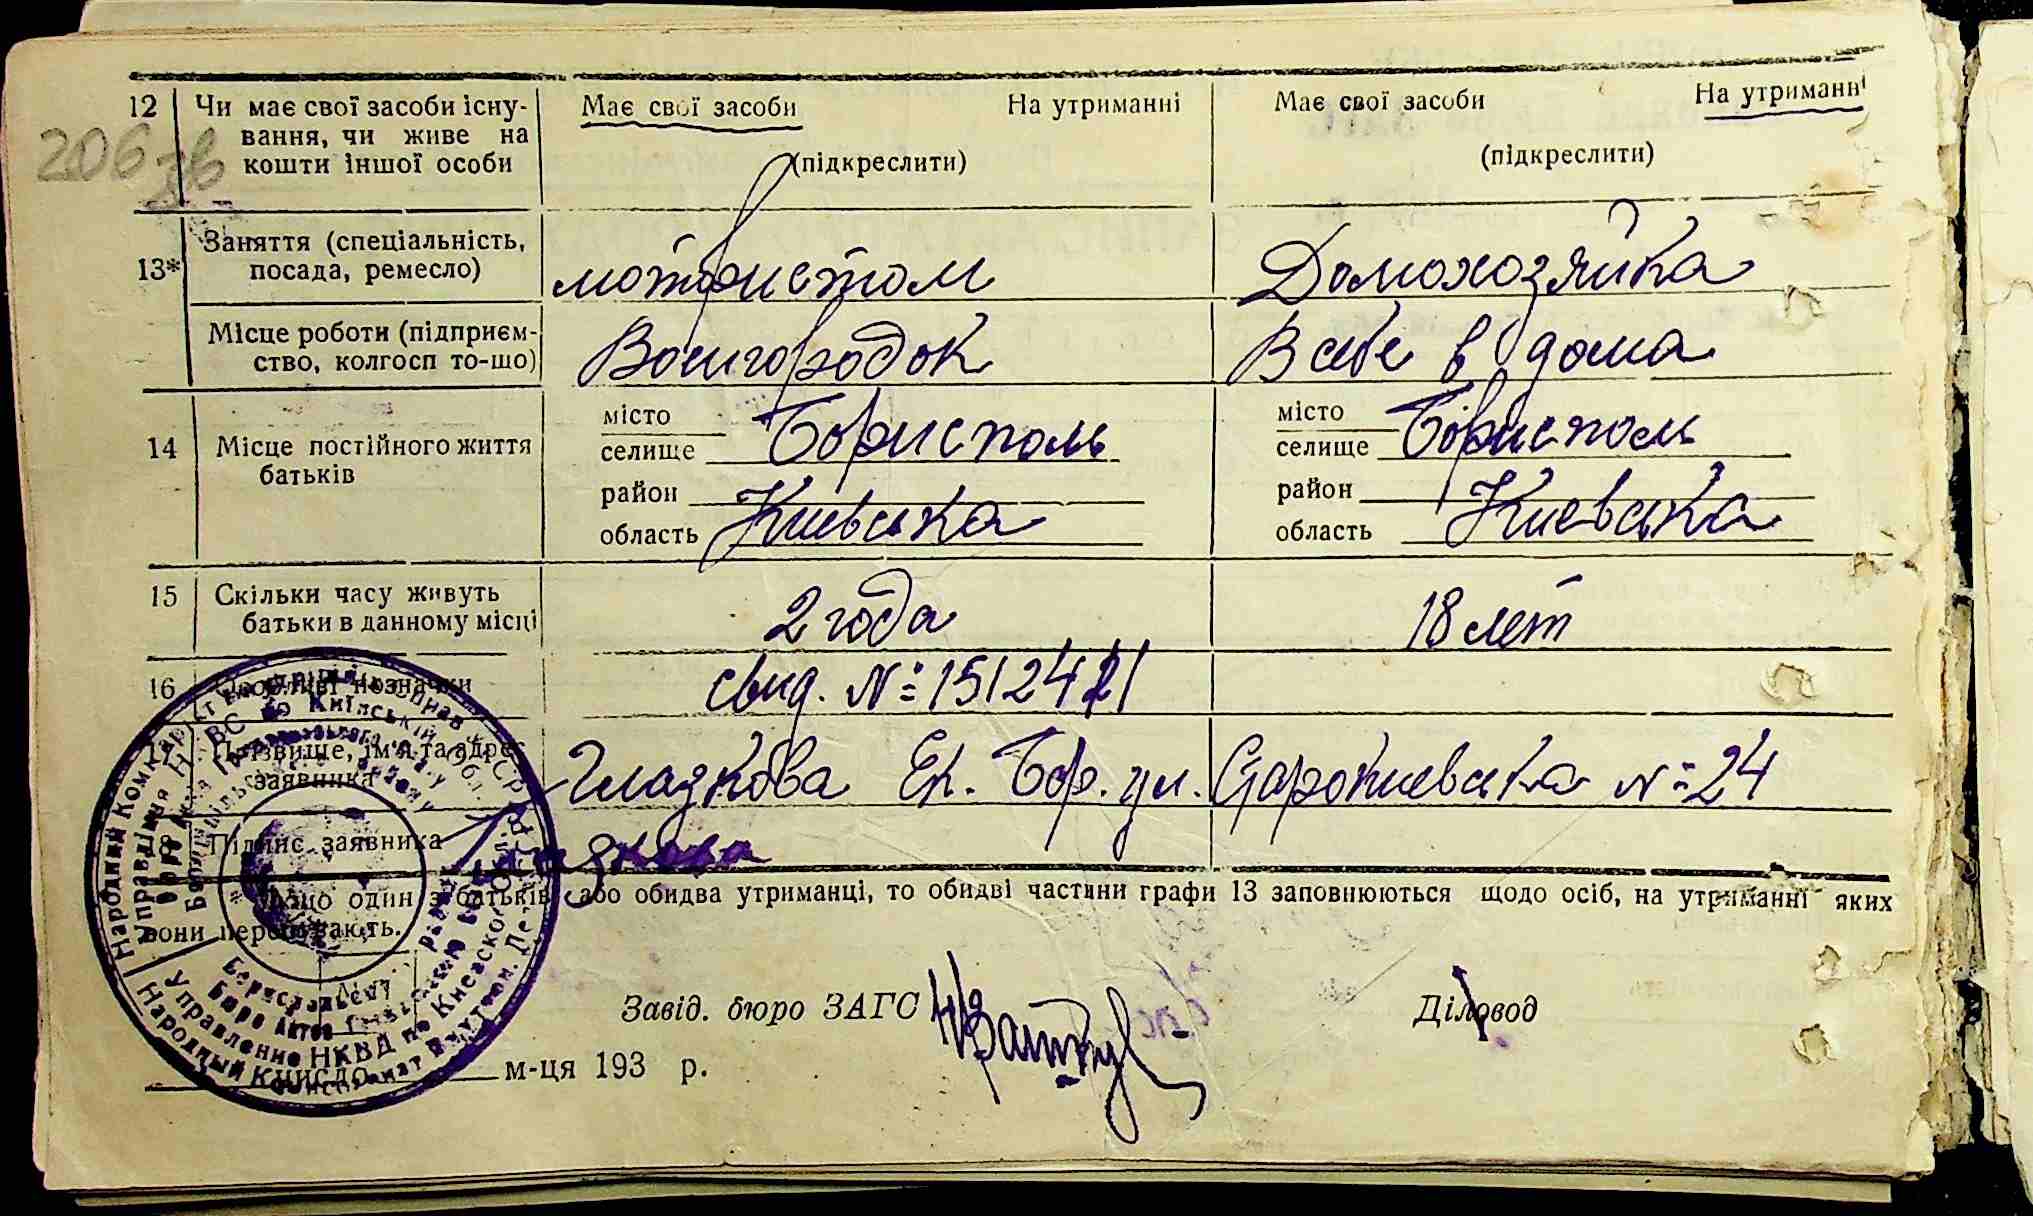 206 зв
12 Чи має свої засоби існу- Має свої засоби На утриманні Має свої засоби На утриманні
вання, чи живе на
кошти іншої особи (підкреслити) (підкреслити)
13* Заняття (спеціальність,
посада, ремесло) мотористом Домохозяйка
Місце роботи (підприєм-
ство, колгосп то-що) Воєнгородок В себе в дома
14 Місце постійного життя
батьків
місто
селище Борисполь
район
область Киевська
місто
селище Борисполь
район
область Киевська
15 Скільки часу живуть
батьки в данному місці 2 года 18 лет
16 Особливі позначки свид. №
17 Прізвище, ім'я та адрес
заявника Гладкова Ек. Бор. ул. Старокиевська №24
18 Підпис заявника Гладкова
* Якщо один з батьків або обидва утриманці, то обидві частини графи 13 заповнюються щодо осіб, на утриманні яких
вони перебувають.
Завід. бюро ЗАГС Діловод
м-ця 193 р.
Народний Комісаріат Внутрішніх Справ УСРР
Управління НКВС по Київській обл.
Управление НКВД по Киевской
Народный Комиссариат Внутрен. Дел